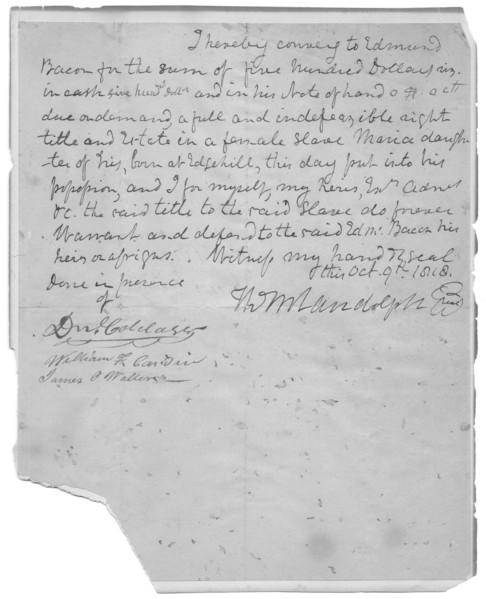 I hereby convey to Edmund
Bacon for the sum of five hundred Dollars viz.
in cash five hund. doll. and in his Note of hand 0 $. 0 cts
due on demand, a full and indefeasible right
title and Estate in a female slave Maria daugh
ter of Iris, born at Edgehill, this day put into his
possession, and I for myself, my heirs, Exrs Admrs
&c. the said title to the said slave do forever
Warrant and defend to the said Edm. Bacon his
heirs or assigns. Witness my hand & seal
this Oct. 9th. 1818.
Done in presence
of
Th M Randolph
William
James